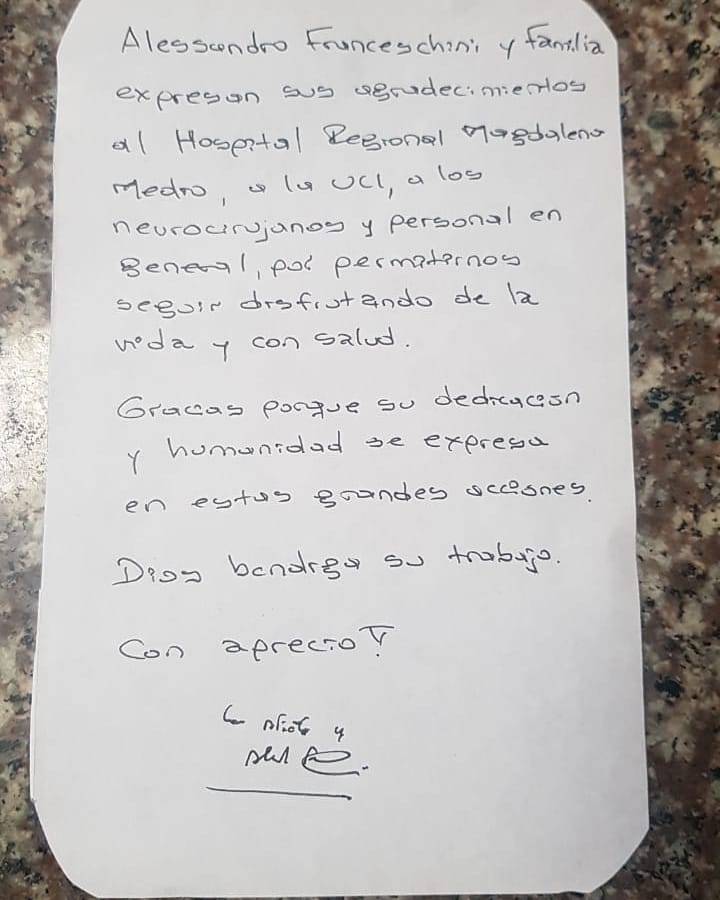 Alessandro Franceschini y familia
expresan sus agradecimientos
al Hospital Regional Magdalena
Medio, a la UCI, a los
neurocirujanos y personal en
general, por permitirnos
seguir disfrutando de la
vida y con salud.
Gracias porque su dedicación
y humanidad se expresa
en estas grandes acciones.
Dios bendiga su trabajo.
Con aprecio